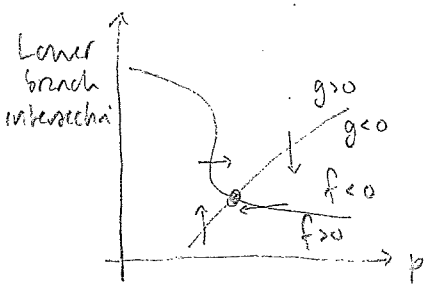 Lower
branch
intersection
g>0
g<0
f<0
f>0
p